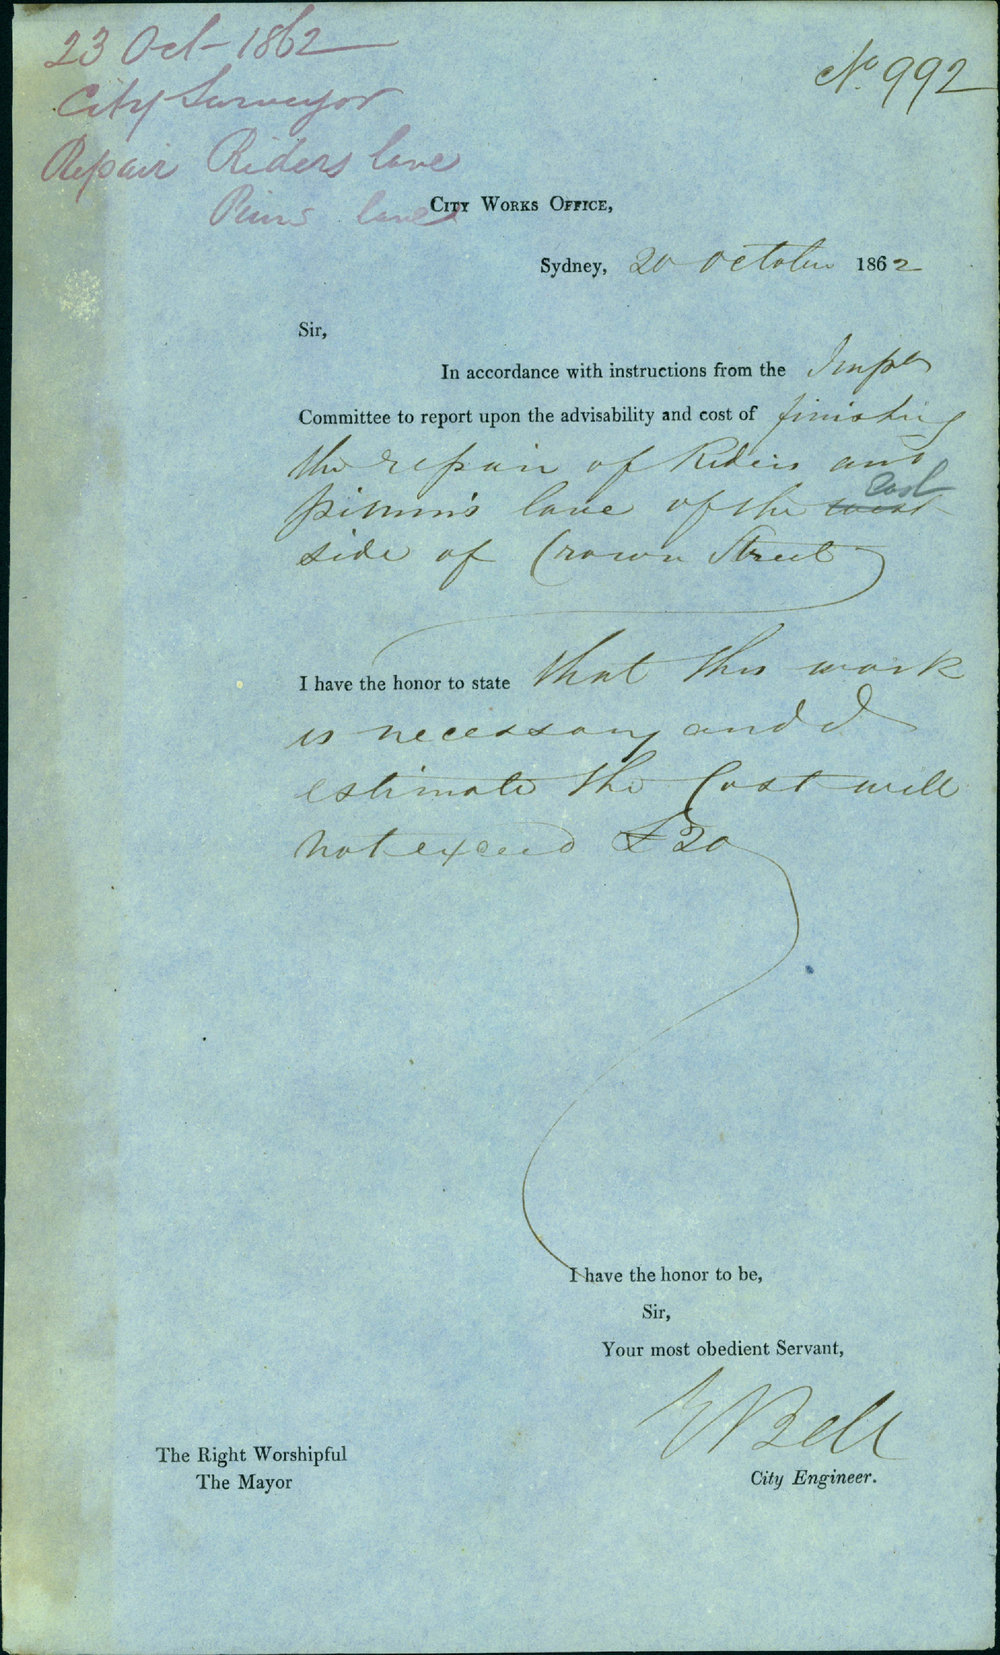 23 Oct - 1862
City Surveyor
Repair Riders lane
lane
No 992
CITY WORKS OFFICE,
Sydney, 20 October 1862
Sir,
In accordance with instructions from the Impt
Committee to report upon the advisability and cost of finishing
the repair of Riders and
pimm's lane of the west East
side of Crown Street
I have the honor to state that this work
is necessary and I
estimate the Cost will
not exceed £20
I have the honor to be,
Sir,
Your most obedient Servant,
E Bell
City Engineer.
The Right Worshipful
The Mayor